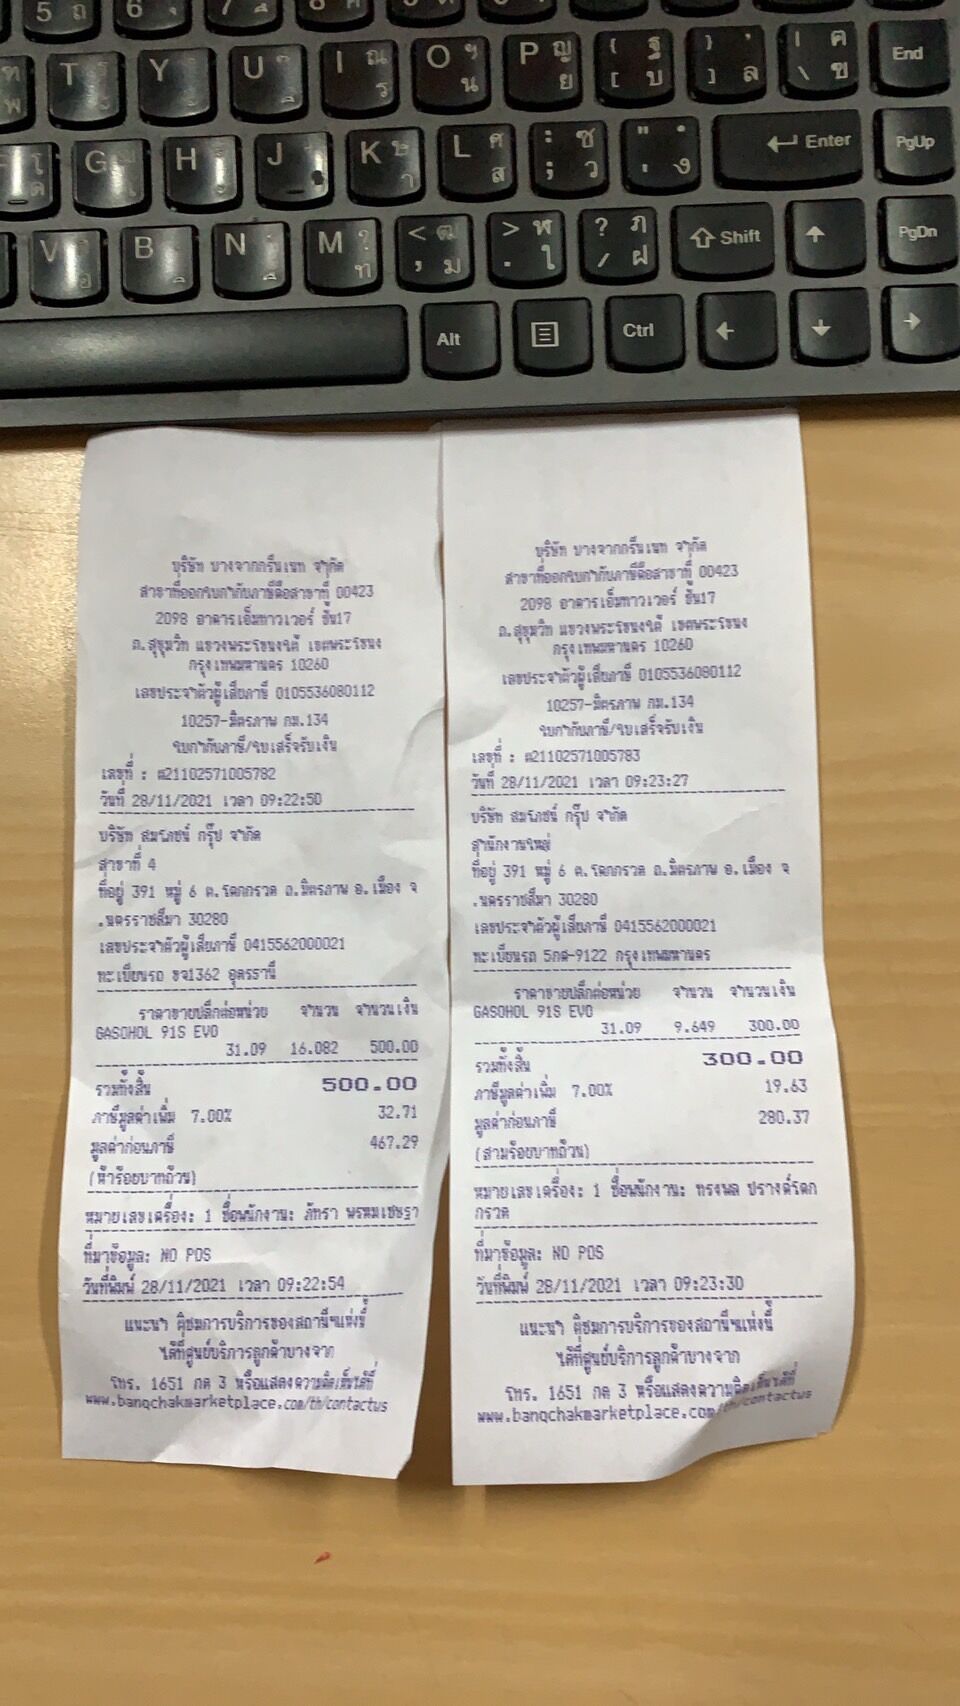 5 ถ
6
7
8
T
Y
U
I ณ ร
O ฯ น
P ญ ย
{ ฐ
[ บ
} ,
] ล
| ฅ
\ ฃ
End
พ
G
H
J
K ษ า
L ศ ส
: ซ
; ว
" .
' ง
Enter
PgUp
V อ
B
N
M ? ท
< ฒ
, ม
> ฬ
. ใ
? ฦ
/ ฝ
Shift
PgDn
Alt
Ctrl
บริษัท บางจากกรีนเนท จำกัด
สาขาที่ออกใบกำกับภาษีคือสาขาที่ 00423
2098 อาคารเอ็มทาวเวอร์ ชั้น17
ถ.สุขุมวิท แขวงพระโขนงใต้ เขตพระโขนง
กรุงเทพมหานคร 10260
เลขประจำตัวผู้เสียภาษี 0105536080112
10257-มิตรภาพ กม.134
ใบกำกับภาษี/ใบเสร็จรับเงิน
เลขที่ : ต21102571005782
วันที่ 28/11/2021 เวลา 09:22:50
บริษัท สมโภชน์ กรุ๊ป จำกัด
สาขาที่ 4
ที่อยู่ 391 หมู่ 6 ต.โคกกรวด ถ.มิตรภาพ อ.เมือง จ
.นครราชสีมา 30280
เลขประจำตัวผู้เสียภาษี 0415562000021
ทะเบียนรถ ขจ1362 อุดรธานี
ราคาขายปลีกต่อหน่วย จำนวน จำนวนเงิน
GASOHOL 91S EVO
31.09 16.082 500.00
รวมทั้งสิ้น 500.00
ภาษีมูลค่าเพิ่ม 7.00% 32.71
มูลค่าก่อนภาษี 467.29
(ห้าร้อยบาทถ้วน)
หมายเลขเครื่อง: 1 ชื่อพนักงาน: ภัทรา พรหมเชษฐา
ที่มาข้อมูล: NO POS
วันที่พิมพ์ 28/11/2021 เวลา 09:22:54
แนะนำ ติชมการบริการของสถานีฯแห่งนี้
ได้ที่ศูนย์บริการลูกค้าบางจาก
โทร. 1651 กด 3 หรือแสดงความคิดเห็นได้ที่
www.bangchakmarketplace.com/th/contactus
บริษัท บางจากกรีนเนท จำกัด
สาขาที่ออกใบกำกับภาษีคือสาขาที่ 00423
2098 อาคารเอ็มทาวเวอร์ ชั้น17
ถ.สุขุมวิท แขวงพระโขนงใต้ เขตพระโขนง
กรุงเทพมหานคร 10260
เลขประจำตัวผู้เสียภาษี 0105536080112
10257-มิตรภาพ กม.134
ใบกำกับภาษี/ใบเสร็จรับเงิน
เลขที่ : ต21102571005783
วันที่ 28/11/2021 เวลา 09:23:27
บริษัท สมโภชน์ กรุ๊ป จำกัด
สำนักงานใหญ่
ที่อยู่ 391 หมู่ 6 ต.โคกกรวด ถ.มิตรภาพ อ.เมือง จ
.นครราชสีมา 30280
เลขประจำตัวผู้เสียภาษี 0415562000021
ทะเบียนรถ 5กศ-9122 กรุงเทพมหานคร
ราคาขายปลีกต่อหน่วย จำนวน จำนวนเงิน
GASOHOL 91S EVO
31.09 9.649 300.00
รวมทั้งสิ้น 300.00
ภาษีมูลค่าเพิ่ม 7.00% 19.63
มูลค่าก่อนภาษี 280.37
(สามร้อยบาทถ้วน)
หมายเลขเครื่อง: 1 ชื่อพนักงาน: ทรงพล ปรางค์โคก
กรวด
ที่มาข้อมูล: NO POS
วันที่พิมพ์ 28/11/2021 เวลา 09:23:30
แนะนำ ติชมการบริการของสถานีฯแห่งนี้
ได้ที่ศูนย์บริการลูกค้าบางจาก
โทร. 1651 กด 3 หรือแสดงความคิดเห็นได้ที่
www.bangchakmarketplace.com/th/contactus